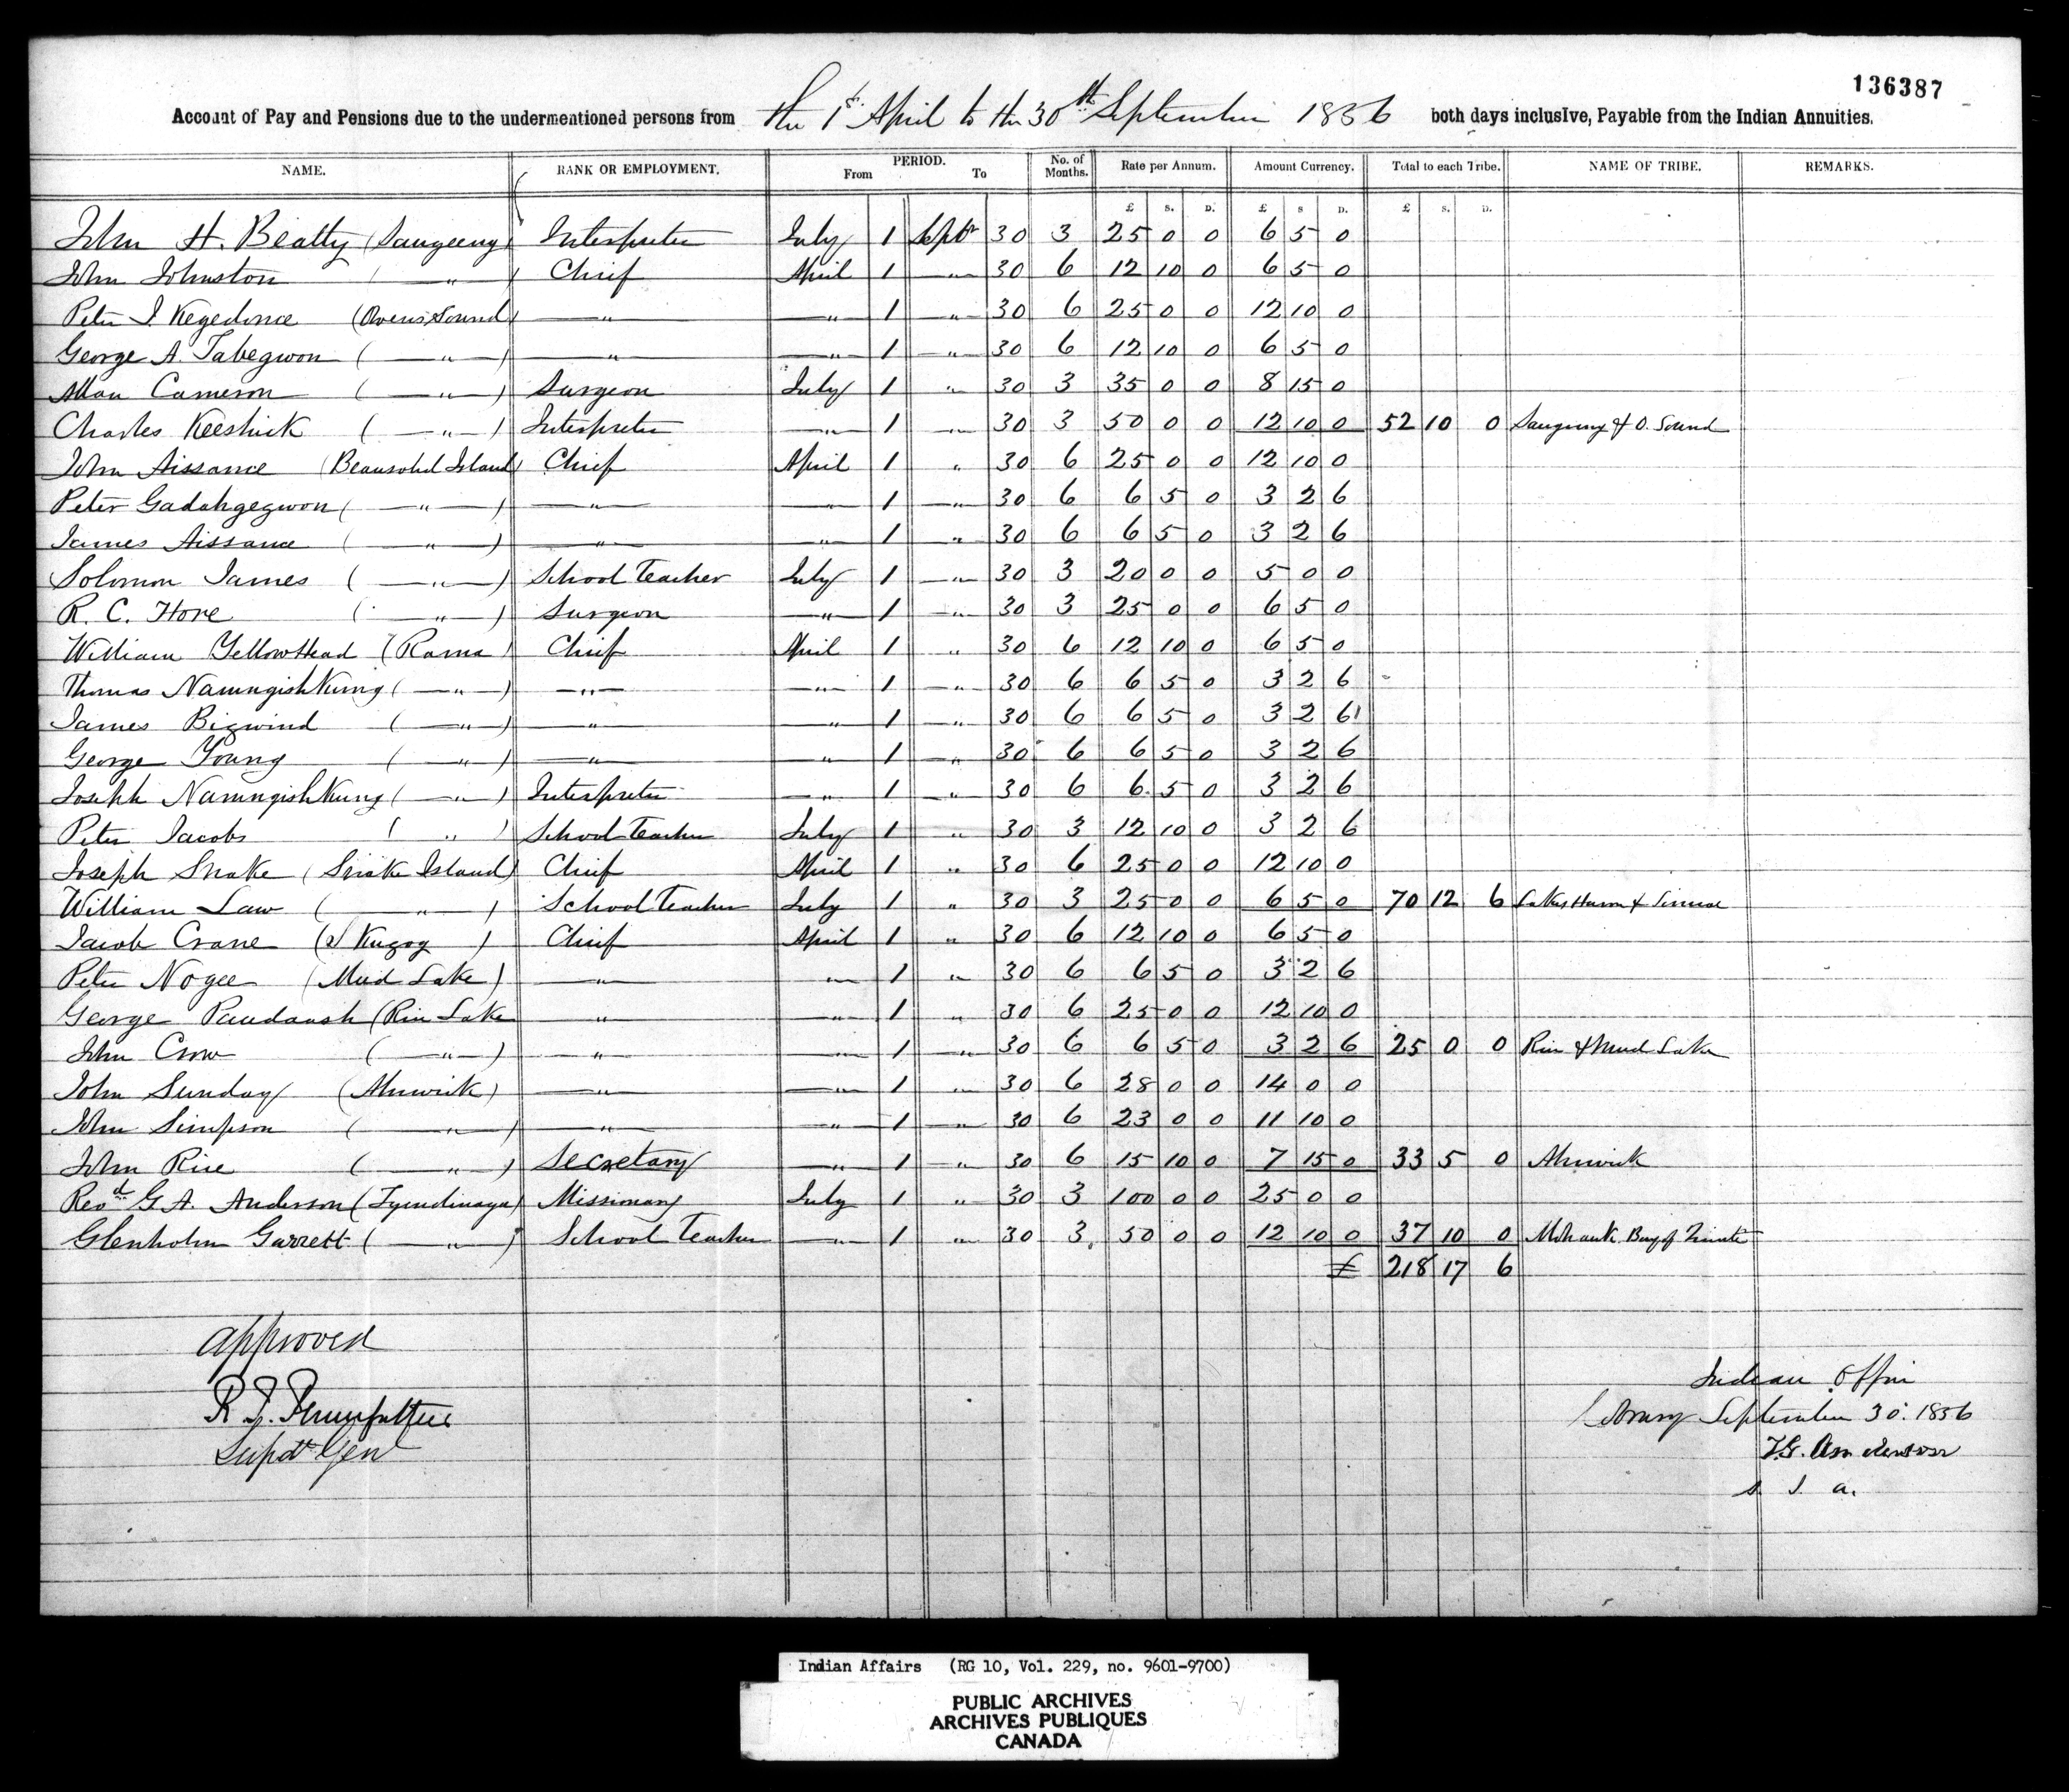 136387
Account of Pay and Pensions due to the undermentioned persons from the 1st April to the 30th September 1856 both days inclusive, Payable from the Indian Annuities.
NAME. RANK OR EMPLOYMENT. PERIOD. From To No. of Months. Rate per Annum. Amount Currency. Total to each Tribe. NAME OF TRIBE. REMARKS.
£ s. D. £ s D. £ s. D.
John H. Beatty (Saugeeng) Interpreter July 1 Septr 30 3 25 0 0 6 5 0
John Johnston ( — " — ) Chief April 1 — " — 30 6 12 10 0 6 5 0
Peter J. Kegedonce (Owens Sound) — " — — " — 1 — " — 30 6 25 0 0 12 10 0
George A. Tabegwon ( — " — ) — " — — " — 1 — " — 30 6 12 10 0 6 5 0
Allan Cameron ( — " — ) Surgeon July 1 " 30 3 35 0 0 8 15 0
Charles Keeshick ( — " — ) Interpreter — " — 1 — " — 30 3 50 0 0 12 10 0 52 10 0 Saugeeng & O. Sound
John Aissance (Beausoliel Island) Chief April 1 " 30 6 25 0 0 12 10 0
Peter Gadahgegwon ( — " — ) — " — — " — 1 — " — 30 6 6 5 0 3 2 6
James Aissance ( — " — ) — " — — " — 1 — " — 30 6 6 5 0 3 2 6
Solomon James ( — " — ) School Teacher July 1 — " — 30 3 20 0 0 5 0 0
R. C. Hore ( — " — ) Surgeon — " — 1 — " — 30 3 25 0 0 6 5 0
William YellowHead (Rama) Chief April 1 " 30 6 12 10 0 6 5 0
Thomas NamngishKung ( — " — ) — " — — " — 1 — " — 30 6 6 5 0 3 2 6
James Bigwind ( — " — ) — " — — " — 1 " 30 6 6 5 0 3 2 6
George Young ( — " — ) — " — — " — 1 — " — 30 6 6 5 0 3 2 6
Joseph NamngishKung ( — " — ) Interpreter — " — 1 — " — 30 6 6 5 0 3 2 6
Peter Jacobs ( " ) School Teacher July 1 " 30 3 12 10 0 3 2 6
Joseph Snake (Snake Island) Chief April 1 " 30 6 25 0 0 12 10 0
William Law ( — " — ) School Teacher July 1 " 30 3 25 0 0 6 5 0 70 12 6 Lakes Huron & Simcoe
Jacob Crane (S Kugog ) Chief April 1 " 30 6 12 10 0 6 5 0
Peter Nogee (Mud Lake) — " — — " — 1 " 30 6 6 5 0 3 2 6
George Paudaush (Rice Lake — " — — " — 1 " 30 6 25 0 0 12 10 0
John Crow ( — " — ) — " — — " — 1 — " — 30 6 6 5 0 3 2 6 25 0 0 Rice & Mud Lake
John Sunday (Alnwick) — " — — " — 1 " 30 6 28 0 0 14 0 0
John Simpson ( — " — ) — " — — " — 1 — " — 30 6 23 0 0 11 10 0
John Rice ( — " — ) Secretary — " — 1 — " — 30 6 15 10 0 7 15 0 33 5 0 Alnwick
Revd G. A. Anderson (Tyendinaga) Missionary July 1 " 30 3 100 0 0 25 0 0
Glenholm Garrett ( — " — ) School Teacher — " — 1 " 30 3 50 0 0 12 10 0 37 10 0 Mohawk Bay of Quinte
£ 218 17 6
Approved
R. T. Pennefather
Supdt Genl
Indian Office
September 30. 1856
T.G. Anderson
S. I. A.
Indian Affairs (RG 10, Vol. 229, no. 9601-9700)
PUBLIC ARCHIVES
ARCHIVES PUBLIQUES
CANADA